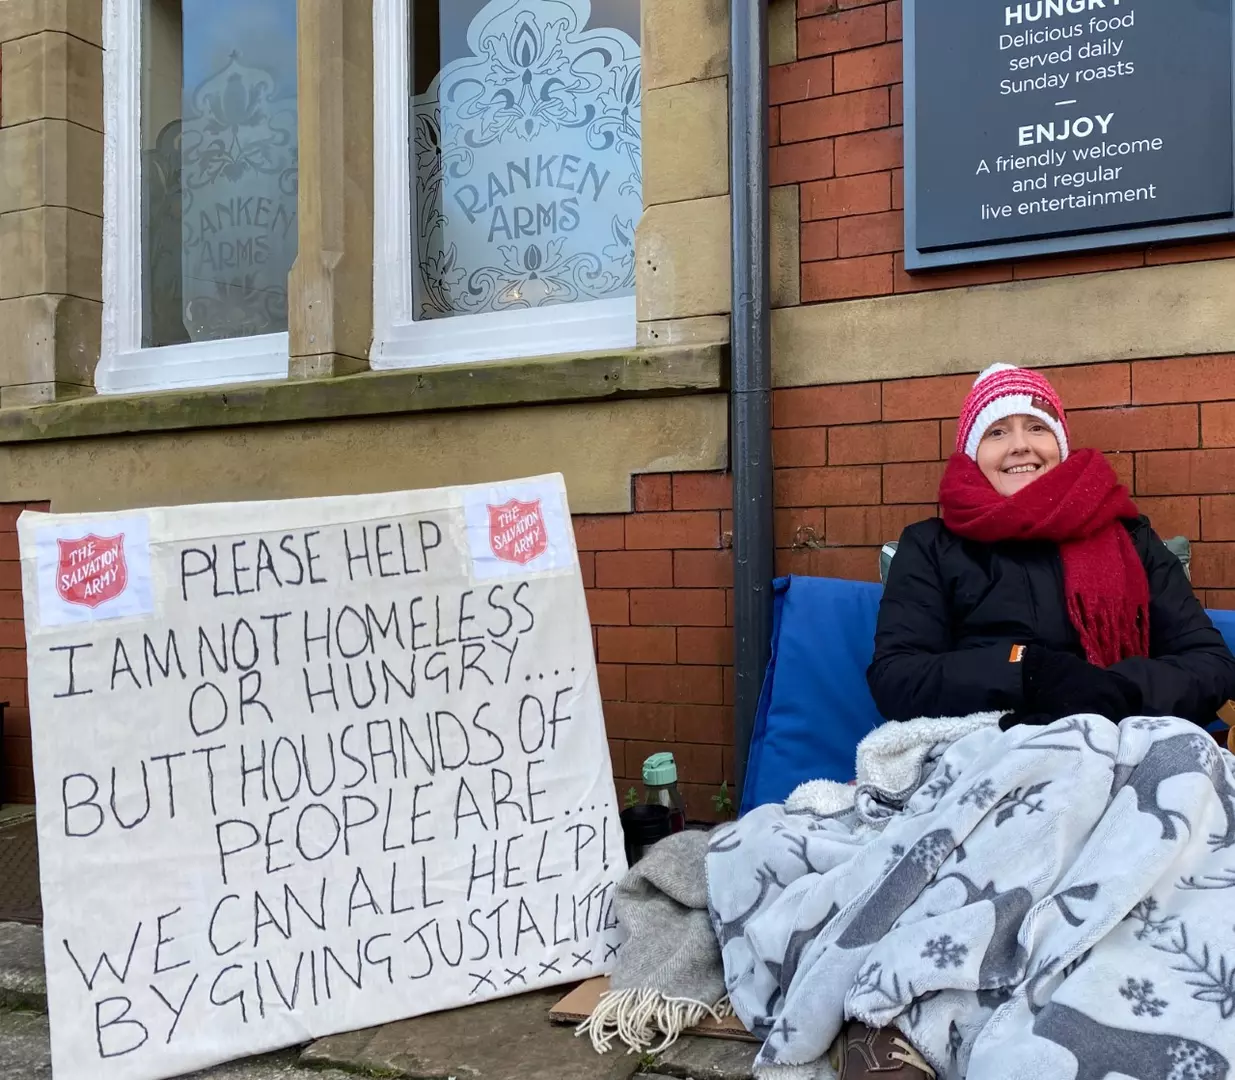 RANKEN
ARMS
RANKEN
ARMS
HUNGRY
Delicious food
served daily
Sunday roasts
ENJOY
A friendly welcome
and regular
live entertainment
THE
SALVATION
ARMY
THE
SALVATION
ARMY
PLEASE HELP
I AM NOT HOMELESS
OR HUNGRY...
BUT THOUSANDS OF
PEOPLE ARE....
WE CAN ALL HELP!
BY GIVING JUST A LITTL
xxxxx